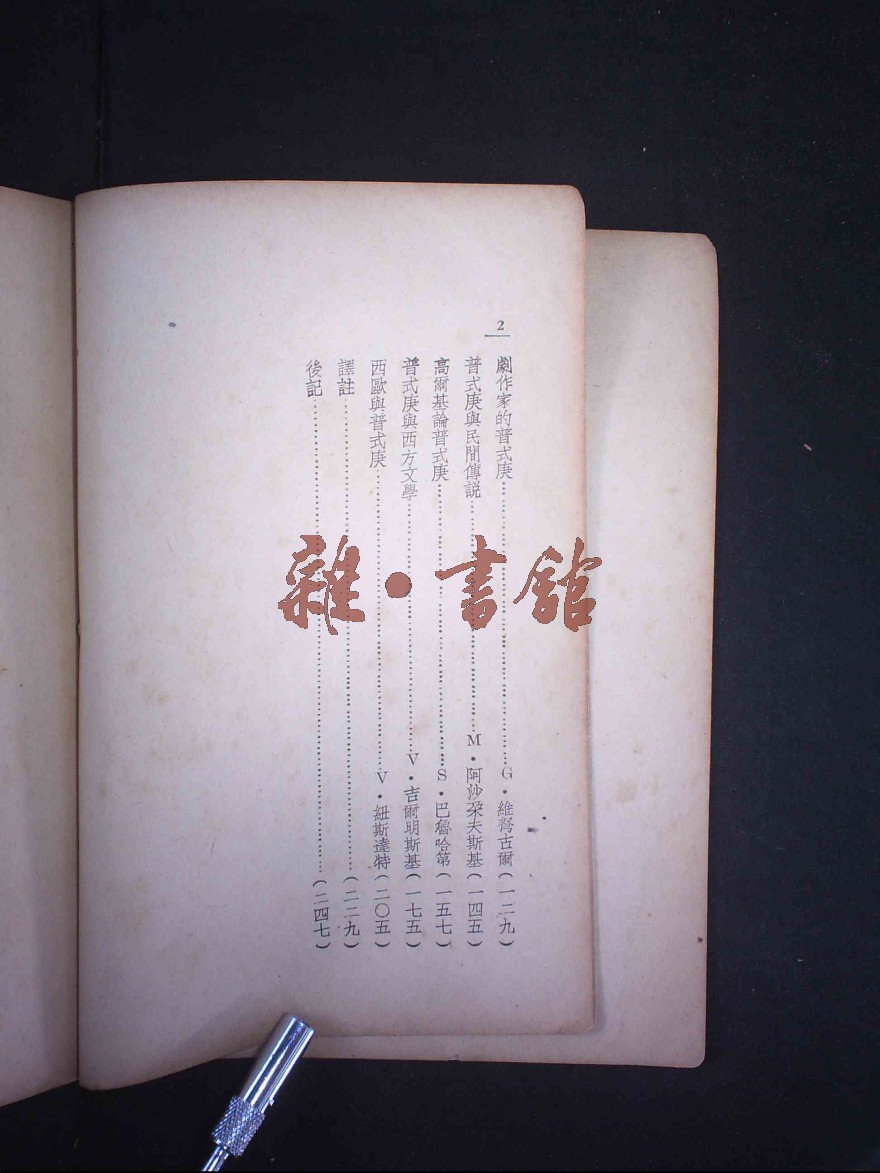 2
劇作家的普式庚……G·維弩古爾(一二九)
普式庚與民間傳説……M·阿沙朶夫斯基(一四五)
高爾基論普式庚……S·巴魯哈第(一五七)
普式庚與西方文學……V·吉爾明斯基(一七五)
西歐與普式庚……V·紐斯達特(二〇五)
譯註……(二二九)
後記……(二四七)
雜·書館